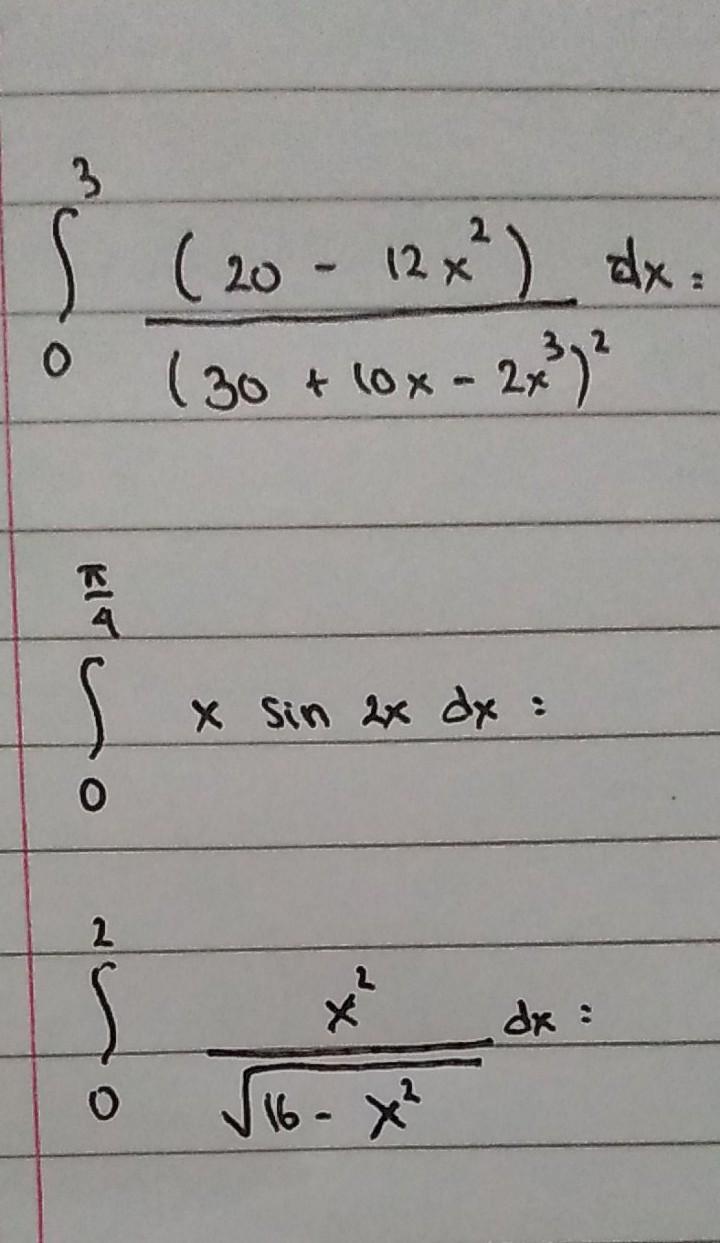 ∫₀³ (20 - 12x²) / (30 + 10x - 2x³)² dx =
∫₀^(π/4) x sin 2x dx =
∫₀² x² / √(16 - x²) dx =